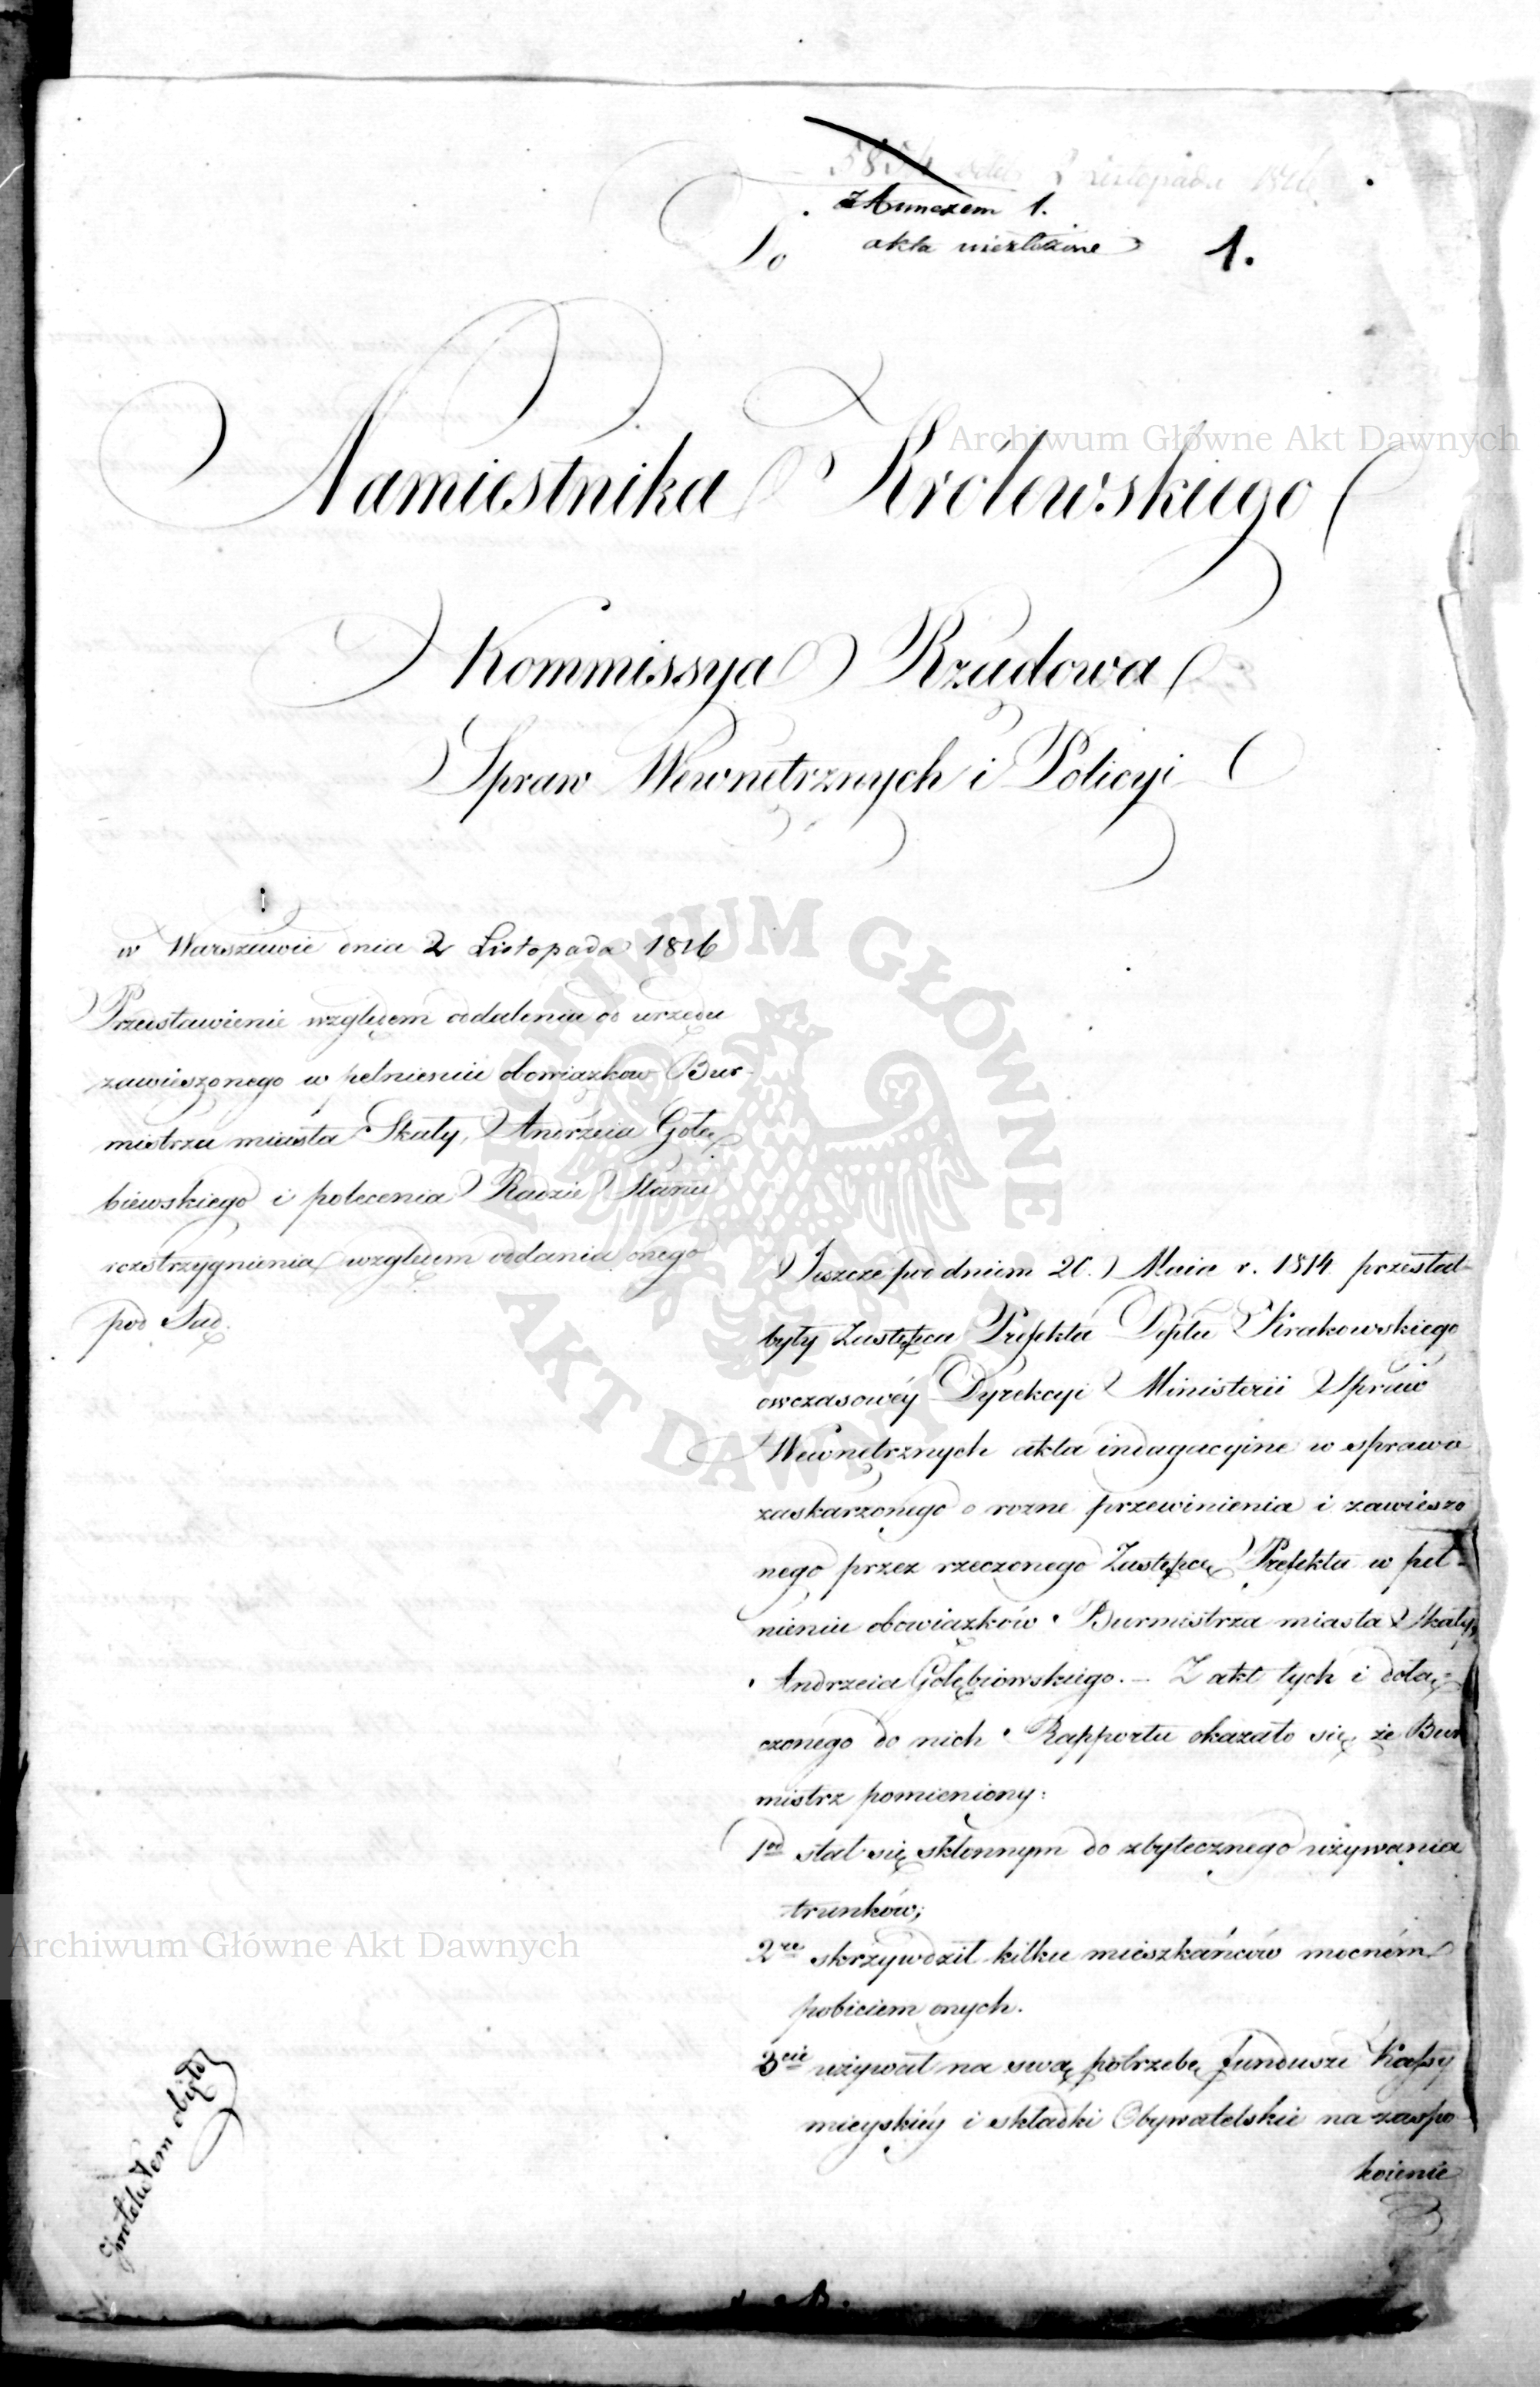 5854 dnia 2 Listopada 1816
z Annexem 1.
akta niezłożone
1.
Do
Namiestnika Królewskiego
Kommissya Rządowa
Spraw Wewnętrznych i Policyi
w Warszawie dnia 2 Listopada 1816
Przedstawienie względem oddalenia od urzędu
zawieszonego w pełnieniu obowiązkow Bur-
mistrza miasta Skały, Andrzeia Gołę
biewskiego i polecenia Radzie Stanu
rozstrzygnienia względem oddania onego
pod Sąd.
Jeszcze pod dniem 20. Maia r. 1814 przesłał
były Zastępca Prefekta Deptu Krakowskiego
owczasowéy Dyrekcyi Ministerii Spraw
Wewnętrznych akta indagacyine w sprawie
zaskarżonego o rozne przewinienia i zawieszo
nego przez rzeczonego Zastępcę Prefekta w peł-
nieniu obowiązków Burmistrza miasta Skały,
Andrzeia Gołębiowskiego. – Z akt tych i dołą-
czonego do nich Rapportu okazało się, że Bur
mistrz pomieniony:
1od stał się skłonnym do zbytecznego używania
trunków;
2re skrzywdził kilku mieszkańców mocném
pobiciem onych.
3cie używał na swą potrzebę fundusze Kassy
mieyskiéy i składki Obywatelskie na zaspo
koienie
Archiwum Główne Akt Dawnych
Archiwum Główne Akt Dawnych
ARCHIWUM GŁÓWNE AKT DAWNYCH